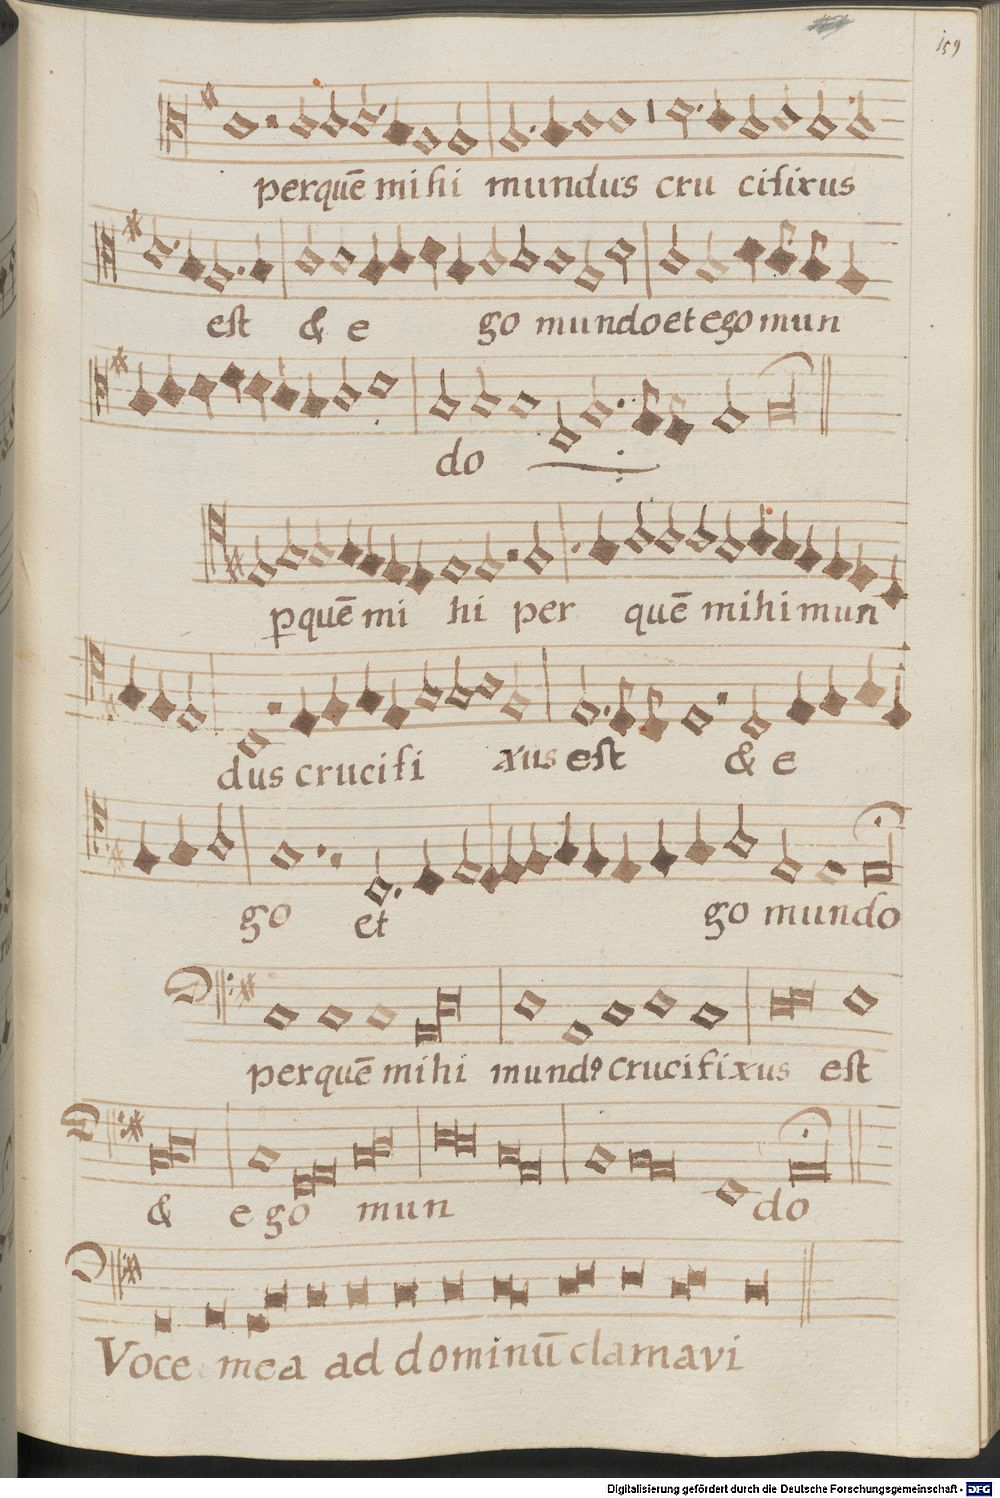 159
perquē mihi mundus cru cifixus
est & e go mundo et ego mun
do
ꝑquē mi hi per quē mihi mun
dus crucifi xus est & e
go et go mundo
perquē mihi mundꝰ crucifixus est
& ego mun do
Voce mea ad dominū clamavi
Digitalisierung gefördert durch die Deutsche Forschungsgemeinschaft - DFG